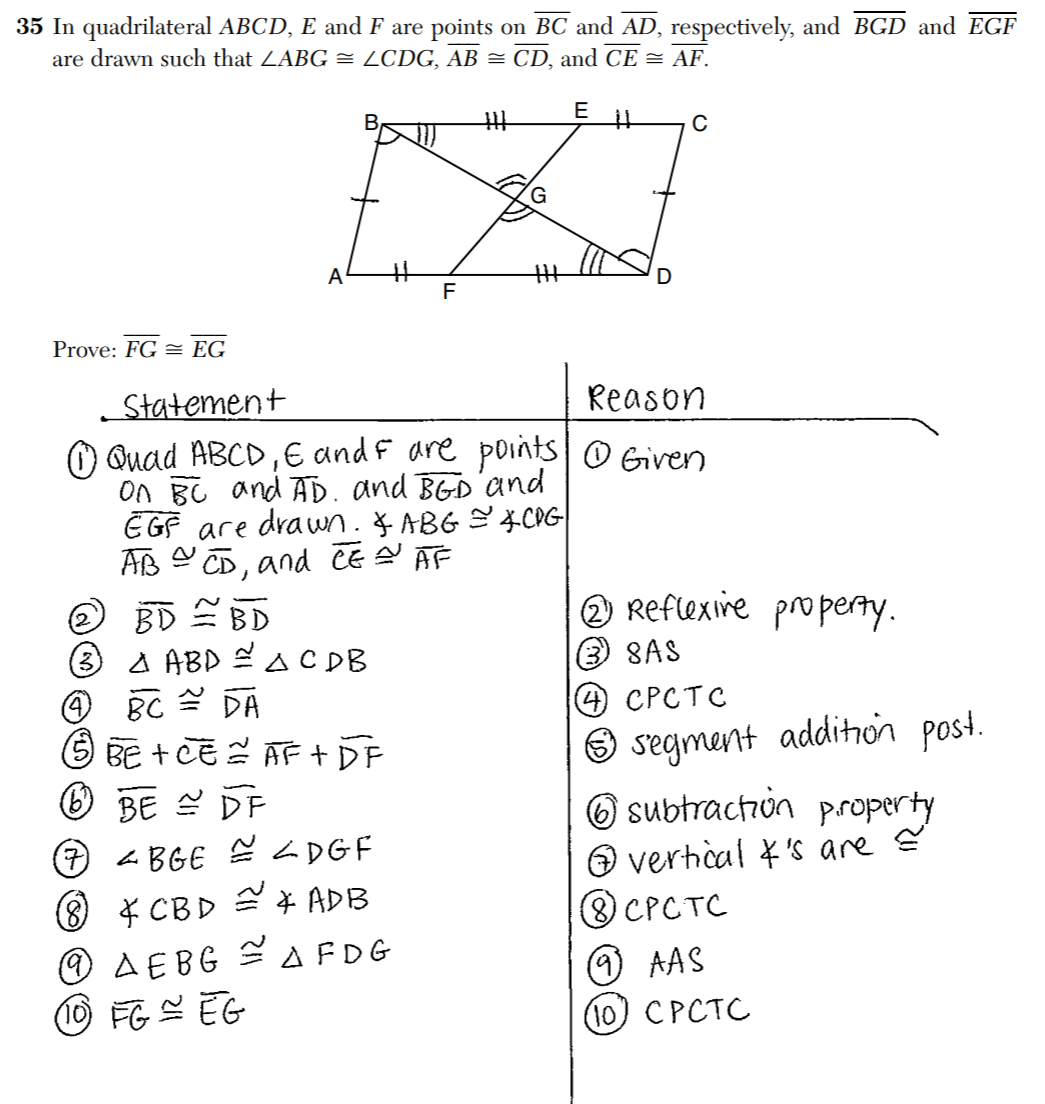 35 In quadrilateral ABCD, E and F are points on B̅C̅ and A̅D̅, respectively, and B̅G̅D̅ and E̅G̅F̅
are drawn such that ∠ABG ≅ ∠CDG, A̅B̅ ≅ C̅D̅, and C̅E̅ ≅ A̅F̅.
B E C
G
A F D
Prove: F̅G̅ ≅ E̅G̅
Statement Reason
① Quad ABCD, E and F are points ① Given
on B̅C̅ and A̅D̅. and B̅G̅D̅ and
E̅G̅F̅ are drawn. ∡ABG ≅ ∡CDG
A̅B̅ ≅ C̅D̅, and C̅E̅ ≅ A̅F̅
② B̅D̅ ≅ B̅D̅ ② Reflexive property.
③ △ABD ≅ △CDB ③ SAS
④ B̅C̅ ≅ D̅A̅ ④ CPCTC
⑤ B̅E̅ + C̅E̅ ≅ A̅F̅ + D̅F̅ ⑤ segment addition post.
⑥ B̅E̅ ≅ D̅F̅ ⑥ subtraction property
⑦ ∠BGE ≅ ∠DGF ⑦ vertical ∡'s are ≅
⑧ ∡CBD ≅ ∡ADB ⑧ CPCTC
⑨ △EBG ≅ △FDG ⑨ AAS
⑩ F̅G̅ ≅ E̅G̅ ⑩ CPCTC